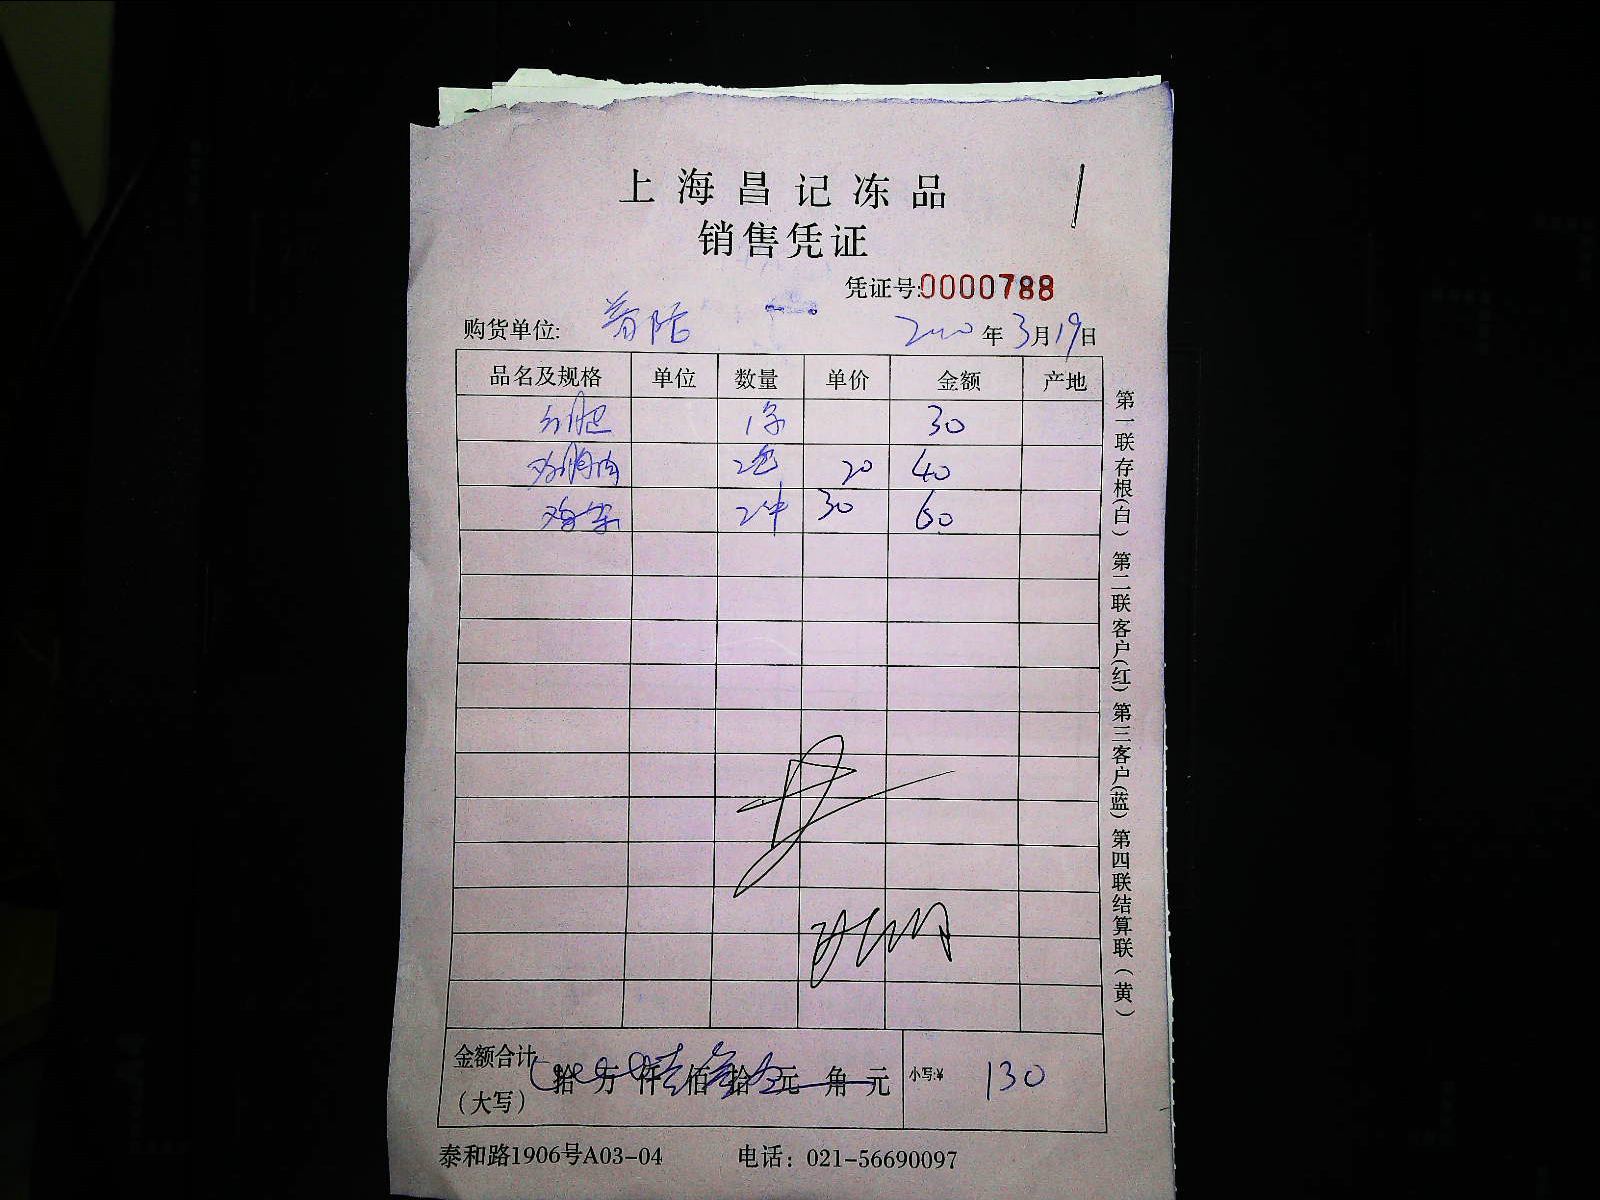 上海昌记冻品
销售凭证
凭证号:0000788
购货单位: 普陀 年3月19日
品名及规格 单位 数量 单价 金额 产地
30
鸡胸肉 2包 20 40
鸡架 2件 30 60
金额合计 拾万仟佰拾元角元 小写:¥ 130
(大写)
泰和路1906号A03-04 电话：021-56690097
第一联存根(白) 第二联客户(红) 第三客户(蓝) 第四联结算联(黄)